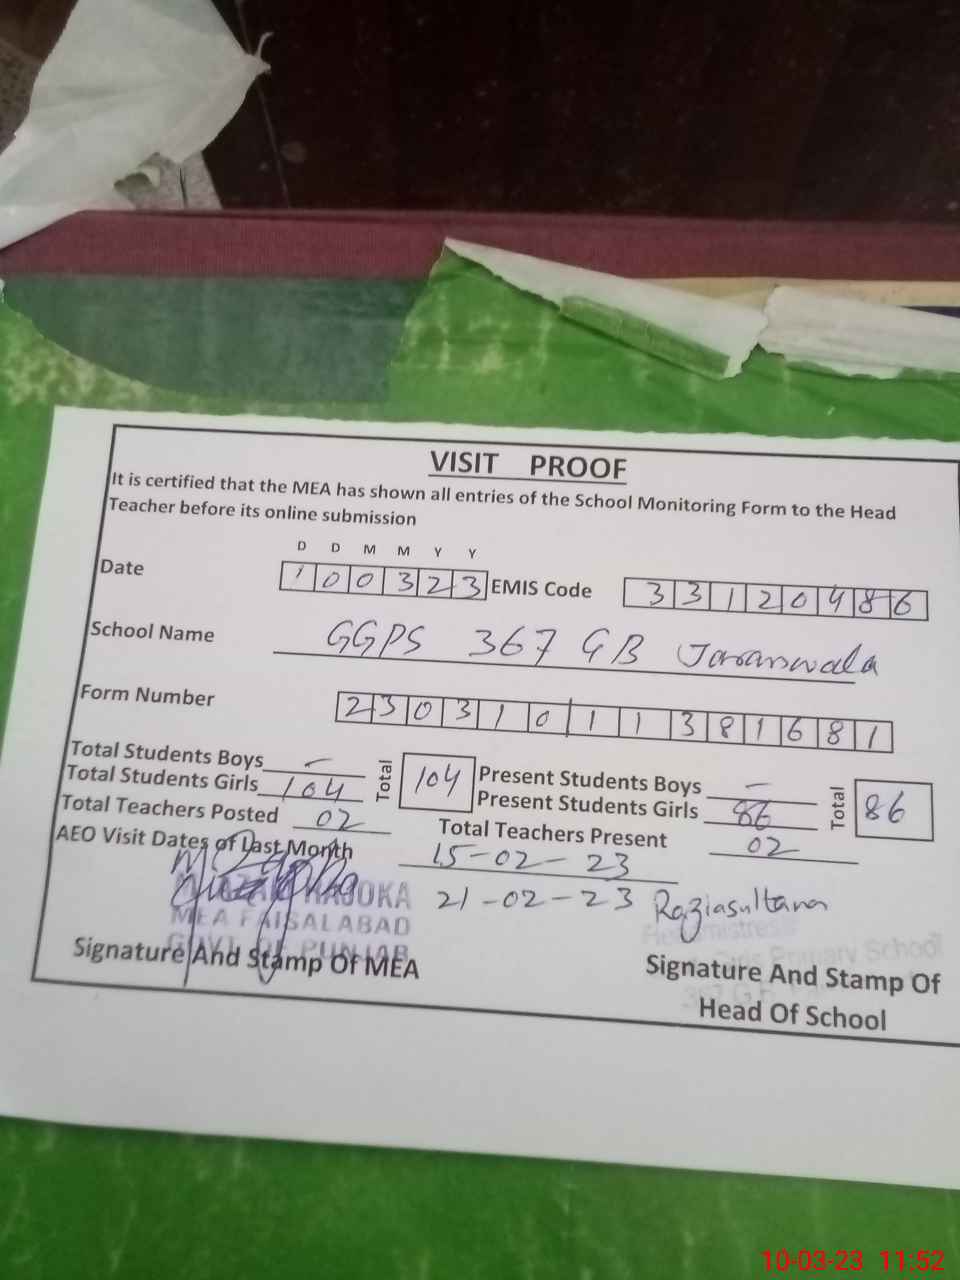 VISIT PROOF
It is certified that the MEA has shown all entries of the School Monitoring Form to the Head
Teacher before its online submission
D D M M Y Y
Date 1 0 0 3 2 3 EMIS Code 3 3 1 2 0 4 8 6
School Name GGPS 367 GB Jaranwala
Form Number 2 3 0 3 1 0 1 1 3 8 1 6 8 1
Total Students Boys - Total 104 Present Students Boys - Total 86
Total Students Girls 104 Present Students Girls 86
Total Teachers Posted 02 Total Teachers Present 02
AEO Visit Dates of Last Month 15-02-23
21-02-23 Raziasultana
MEA FAISALABAD
GOVT. OF PUNJAB
Headmistress
Girls Primary School
367 G.B.
Signature And Stamp Of MEA
Signature And Stamp Of
Head Of School
10-03-23 11:52